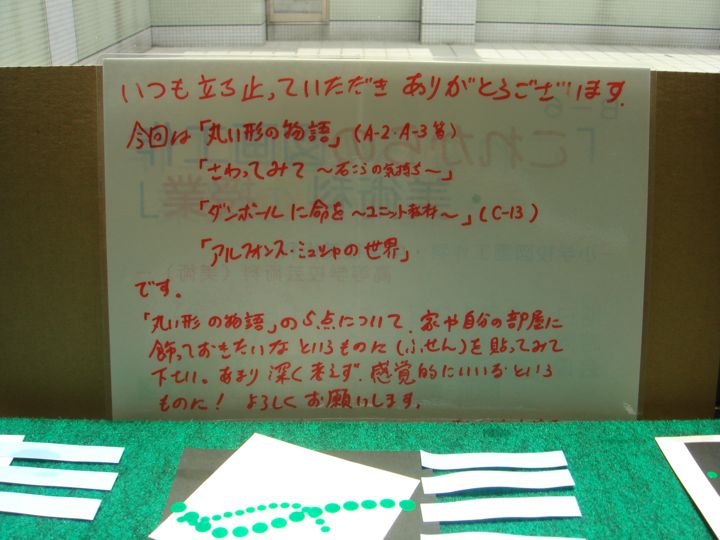 いつも立ち止っていただき ありがとうございます.
今回は「丸い形の物語」(A-2・A-3等)
「さわってみて ～石ころの気持ち～」
「ダンボールに命を ～ユニット教材～」(C-13)
「アルフォンス・ミュシャの世界」
です。
「丸い形の物語」の5点について、家や自分の部屋に
飾っておきたいな というものに(ふせん)を貼ってみて
下さい。あまり深く考えず、感覚的にいいなという
ものに! よろしくお願いします。